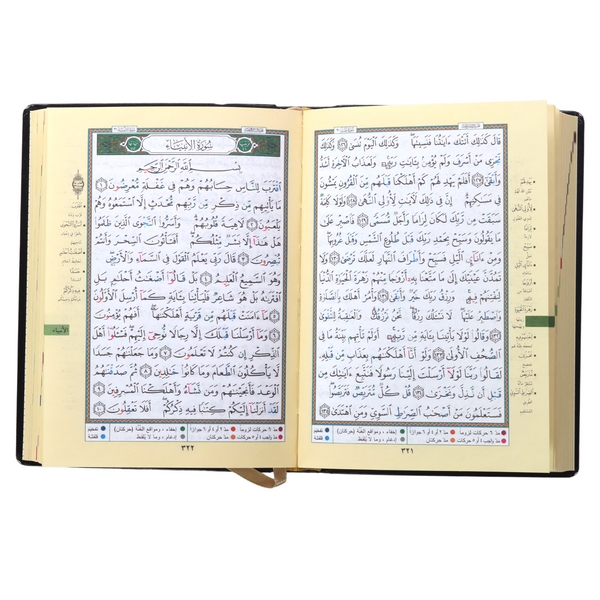 قَالَ كَذَٰلِكَ أَتَتْكَ ءَايَٰتُنَا فَنَسِيتَهَا ۖ وَكَذَٰلِكَ ٱلْيَوْمَ تُنسَىٰ ١٢٦ وَكَذَٰلِكَ
نَجْزِى مَنْ أَسْرَفَ وَلَمْ يُؤْمِنۢ بِـَٔايَٰتِ رَبِّهِۦ ۚ وَلَعَذَابُ ٱلْـَٔاخِرَةِ أَشَدُّ
وَأَبْقَىٰٓ ١٢٧ أَفَلَمْ يَهْدِ لَهُمْ كَمْ أَهْلَكْنَا قَبْلَهُم مِّنَ ٱلْقُرُونِ يَمْشُونَ
فِى مَسَٰكِنِهِمْ ۗ إِنَّ فِى ذَٰلِكَ لَـَٔايَٰتٍ لِّأُو۟لِى ٱلنُّهَىٰ ١٢٨ وَلَوْلَا كَلِمَةٌ
سَبَقَتْ مِن رَّبِّكَ لَكَانَ لِزَامًا وَأَجَلٌ مُّسَمًّى ١٢٩ فَٱصْبِرْ عَلَىٰ
مَا يَقُولُونَ وَسَبِّحْ بِحَمْدِ رَبِّكَ قَبْلَ طُلُوعِ ٱلشَّمْسِ وَقَبْلَ غُرُوبِهَا ۖ
وَمِنْ ءَانَآئِ ٱلَّيْلِ فَسَبِّحْ وَأَطْرَافَ ٱلنَّهَارِ لَعَلَّكَ تَرْضَىٰ ١٣٠ وَلَا
تَمُدَّنَّ عَيْنَيْكَ إِلَىٰ مَا مَتَّعْنَا بِهِۦٓ أَزْوَٰجًا مِّنْهُمْ زَهْرَةَ ٱلْحَيَوٰةِ ٱلدُّنْيَا
لِنَفْتِنَهُمْ فِيهِ ۚ وَرِزْقُ رَبِّكَ خَيْرٌ وَأَبْقَىٰ ١٣١ وَأْمُرْ أَهْلَكَ بِٱلصَّلَوٰةِ
وَٱصْطَبِرْ عَلَيْهَا ۖ لَا نَسْـَٔلُكَ رِزْقًا ۖ نَّحْنُ نَرْزُقُكَ ۗ وَٱلْعَٰقِبَةُ لِلتَّقْوَىٰ
١٣٢ وَقَالُوا۟ لَوْلَا يَأْتِينَا بِـَٔايَةٍ مِّن رَّبِّهِۦٓ ۚ أَوَلَمْ تَأْتِهِم بَيِّنَةُ مَا فِى
ٱلصُّحُفِ ٱلْأُولَىٰ ١٣٣ وَلَوْ أَنَّآ أَهْلَكْنَٰهُم بِعَذَابٍ مِّن قَبْلِهِۦ
لَقَالُوا۟ رَبَّنَا لَوْلَآ أَرْسَلْتَ إِلَيْنَا رَسُولًا فَنَتَّبِعَ ءَايَٰتِكَ مِن
قَبْلِ أَن نَّذِلَّ وَنَخْزَىٰ ١٣٤ قُلْ كُلٌّ مُّتَرَبِّصٌ فَتَرَبَّصُوا۟ ۖ
فَسَتَعْلَمُونَ مَنْ أَصْحَٰبُ ٱلصِّرَٰطِ ٱلسَّوِىِّ وَمَنِ ٱهْتَدَىٰ ١٣٥
٣٢١
سُورَةُ الأَنبِيَاءِ
بِسْمِ ٱللَّهِ ٱلرَّحْمَٰنِ ٱلرَّحِيمِ
ٱقْتَرَبَ لِلنَّاسِ حِسَابُهُمْ وَهُمْ فِى غَفْلَةٍ مُّعْرِضُونَ ١
مَا يَأْتِيهِم مِّن ذِكْرٍ مِّن رَّبِّهِم مُّحْدَثٍ إِلَّا ٱسْتَمَعُوهُ وَهُمْ
يَلْعَبُونَ ٢ لَاهِيَةً قُلُوبُهُمْ ۗ وَأَسَرُّوا۟ ٱلنَّجْوَى ٱلَّذِينَ ظَلَمُوا۟
هَلْ هَٰذَآ إِلَّا بَشَرٌ مِّثْلُكُمْ ۖ أَفَتَأْتُونَ ٱلسِّحْرَ وَأَنتُمْ
تُبْصِرُونَ ٣ قَالَ رَبِّى يَعْلَمُ ٱلْقَوْلَ فِى ٱلسَّمَآءِ وَٱلْأَرْضِ ۖ
وَهُوَ ٱلسَّمِيعُ ٱلْعَلِيمُ ٤ بَلْ قَالُوٓا۟ أَضْغَٰثُ أَحْلَٰمٍۭ بَلِ
ٱفْتَرَىٰهُ بَلْ هُوَ شَاعِرٌ فَلْيَأْتِنَا بِـَٔايَةٍ كَمَآ أُرْسِلَ ٱلْأَوَّلُونَ
٥ مَآ ءَامَنَتْ قَبْلَهُم مِّن قَرْيَةٍ أَهْلَكْنَٰهَآ ۖ أَفَهُمْ يُؤْمِنُونَ
٦ وَمَآ أَرْسَلْنَا قَبْلَكَ إِلَّا رِجَالًا نُّوحِىٓ إِلَيْهِمْ ۖ فَسْـَٔلُوٓا۟ أَهْلَ
ٱلذِّكْرِ إِن كُنتُمْ لَا تَعْلَمُونَ ٧ وَمَا جَعَلْنَٰهُمْ جَسَدًا
لَّا يَأْكُلُونَ ٱلطَّعَامَ وَمَا كَانُوا۟ خَٰلِدِينَ ٨ ثُمَّ صَدَقْنَٰهُمُ
ٱلْوَعْدَ فَأَنجَيْنَٰهُمْ وَمَن نَّشَآءُ وَأَهْلَكْنَا ٱلْمُسْرِفِينَ ٩
لَقَدْ أَنزَلْنَآ إِلَيْكُمْ كِتَٰبًا فِيهِ ذِكْرُكُمْ ۖ أَفَلَا تَعْقِلُونَ ١٠
الأنبياء
٣٢٢